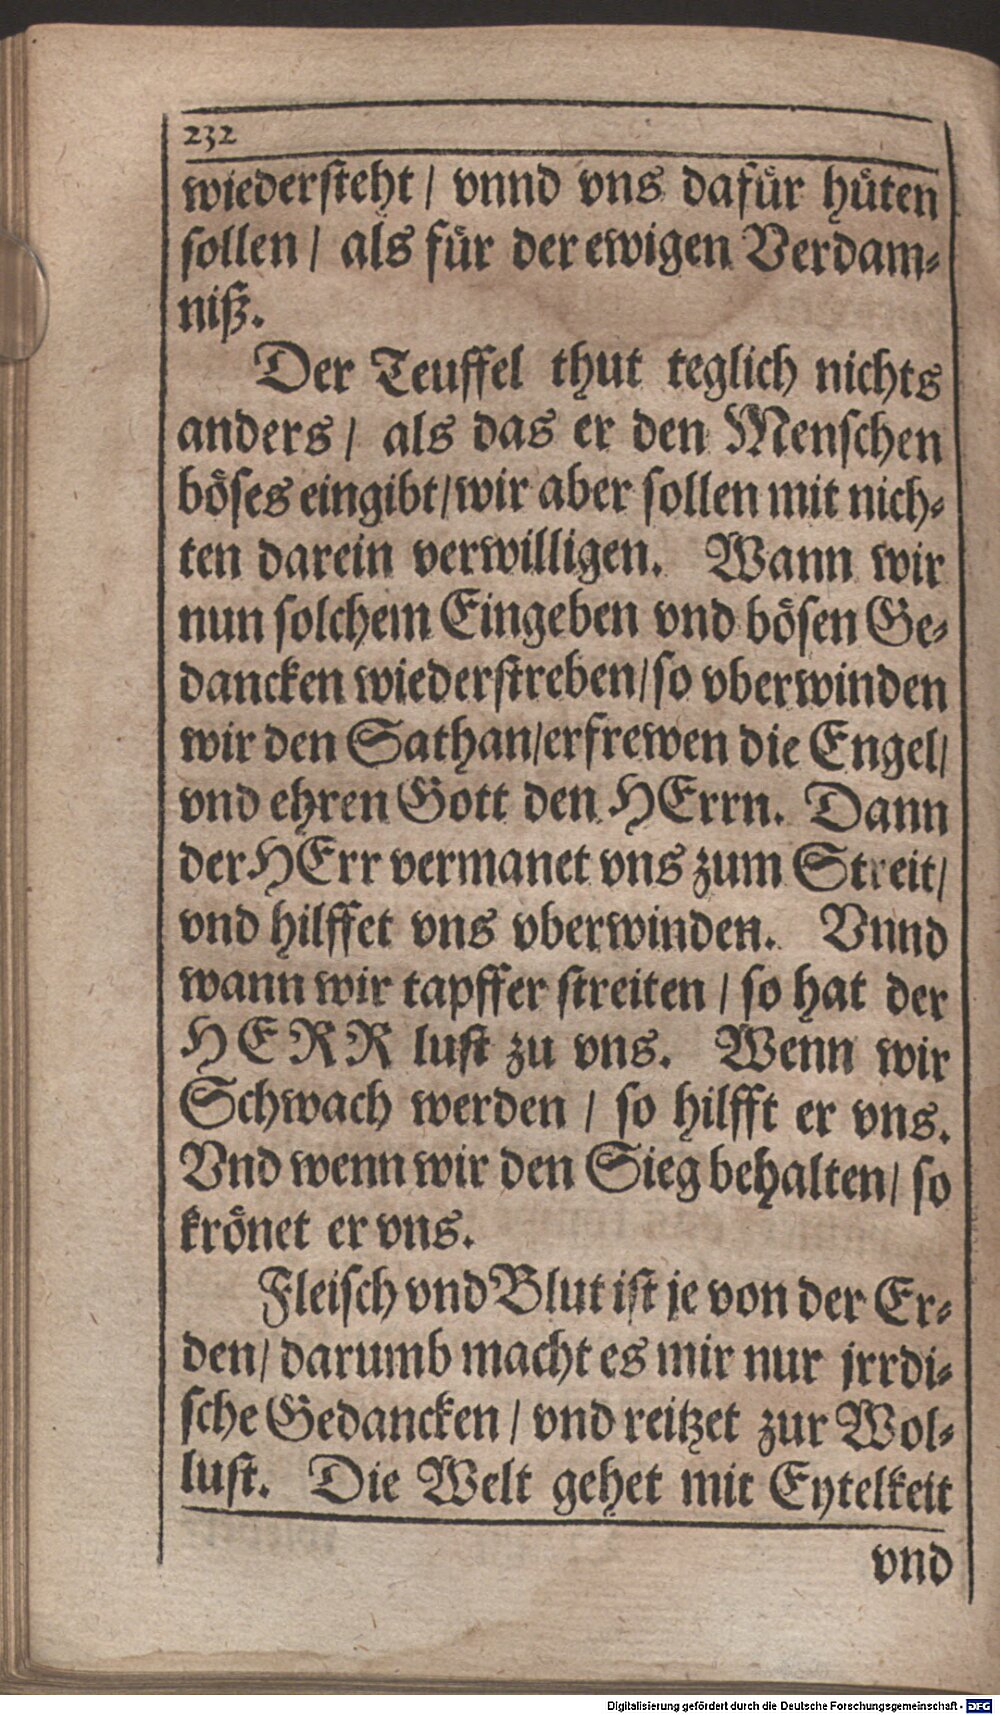 232
wiedersteht / vnnd vns dafuͤr huͤten
sollen / als fuͤr der ewigen Verdam⸗
niß.
Der Teuffel thut teglich nichts
anders / als das er den Menschen
boͤses eingibt / wir aber sollen mit nich⸗
ten darein verwilligen. Wann wir
nun solchem Eingeben vnd boͤsen Ge⸗
dancken wiederstreben / so vberwinden
wir den Sathan / erfrewen die Engel /
vnd ehren Gott den HErrn. Dann
der HErr vermanet vns zum Streit /
vnd hilffet vns vberwinden. Vnnd
wann wir tapffer streiten / so hat der
HERR lust zu vns. Wenn wir
Schwach werden / so hilfft er vns.
Vnd wenn wir den Sieg behalten / so
kroͤnet er vns.
Fleisch vnd Blut ist je von der Er⸗
den / darumb macht es mir nur jrrdi⸗
sche Gedancken / vnd reitzet zur Wol⸗
lust. Die Welt gehet mit Eytelkeit
vnd
Digitalisierung gefördert durch die Deutsche Forschungsgemeinschaft - DFG